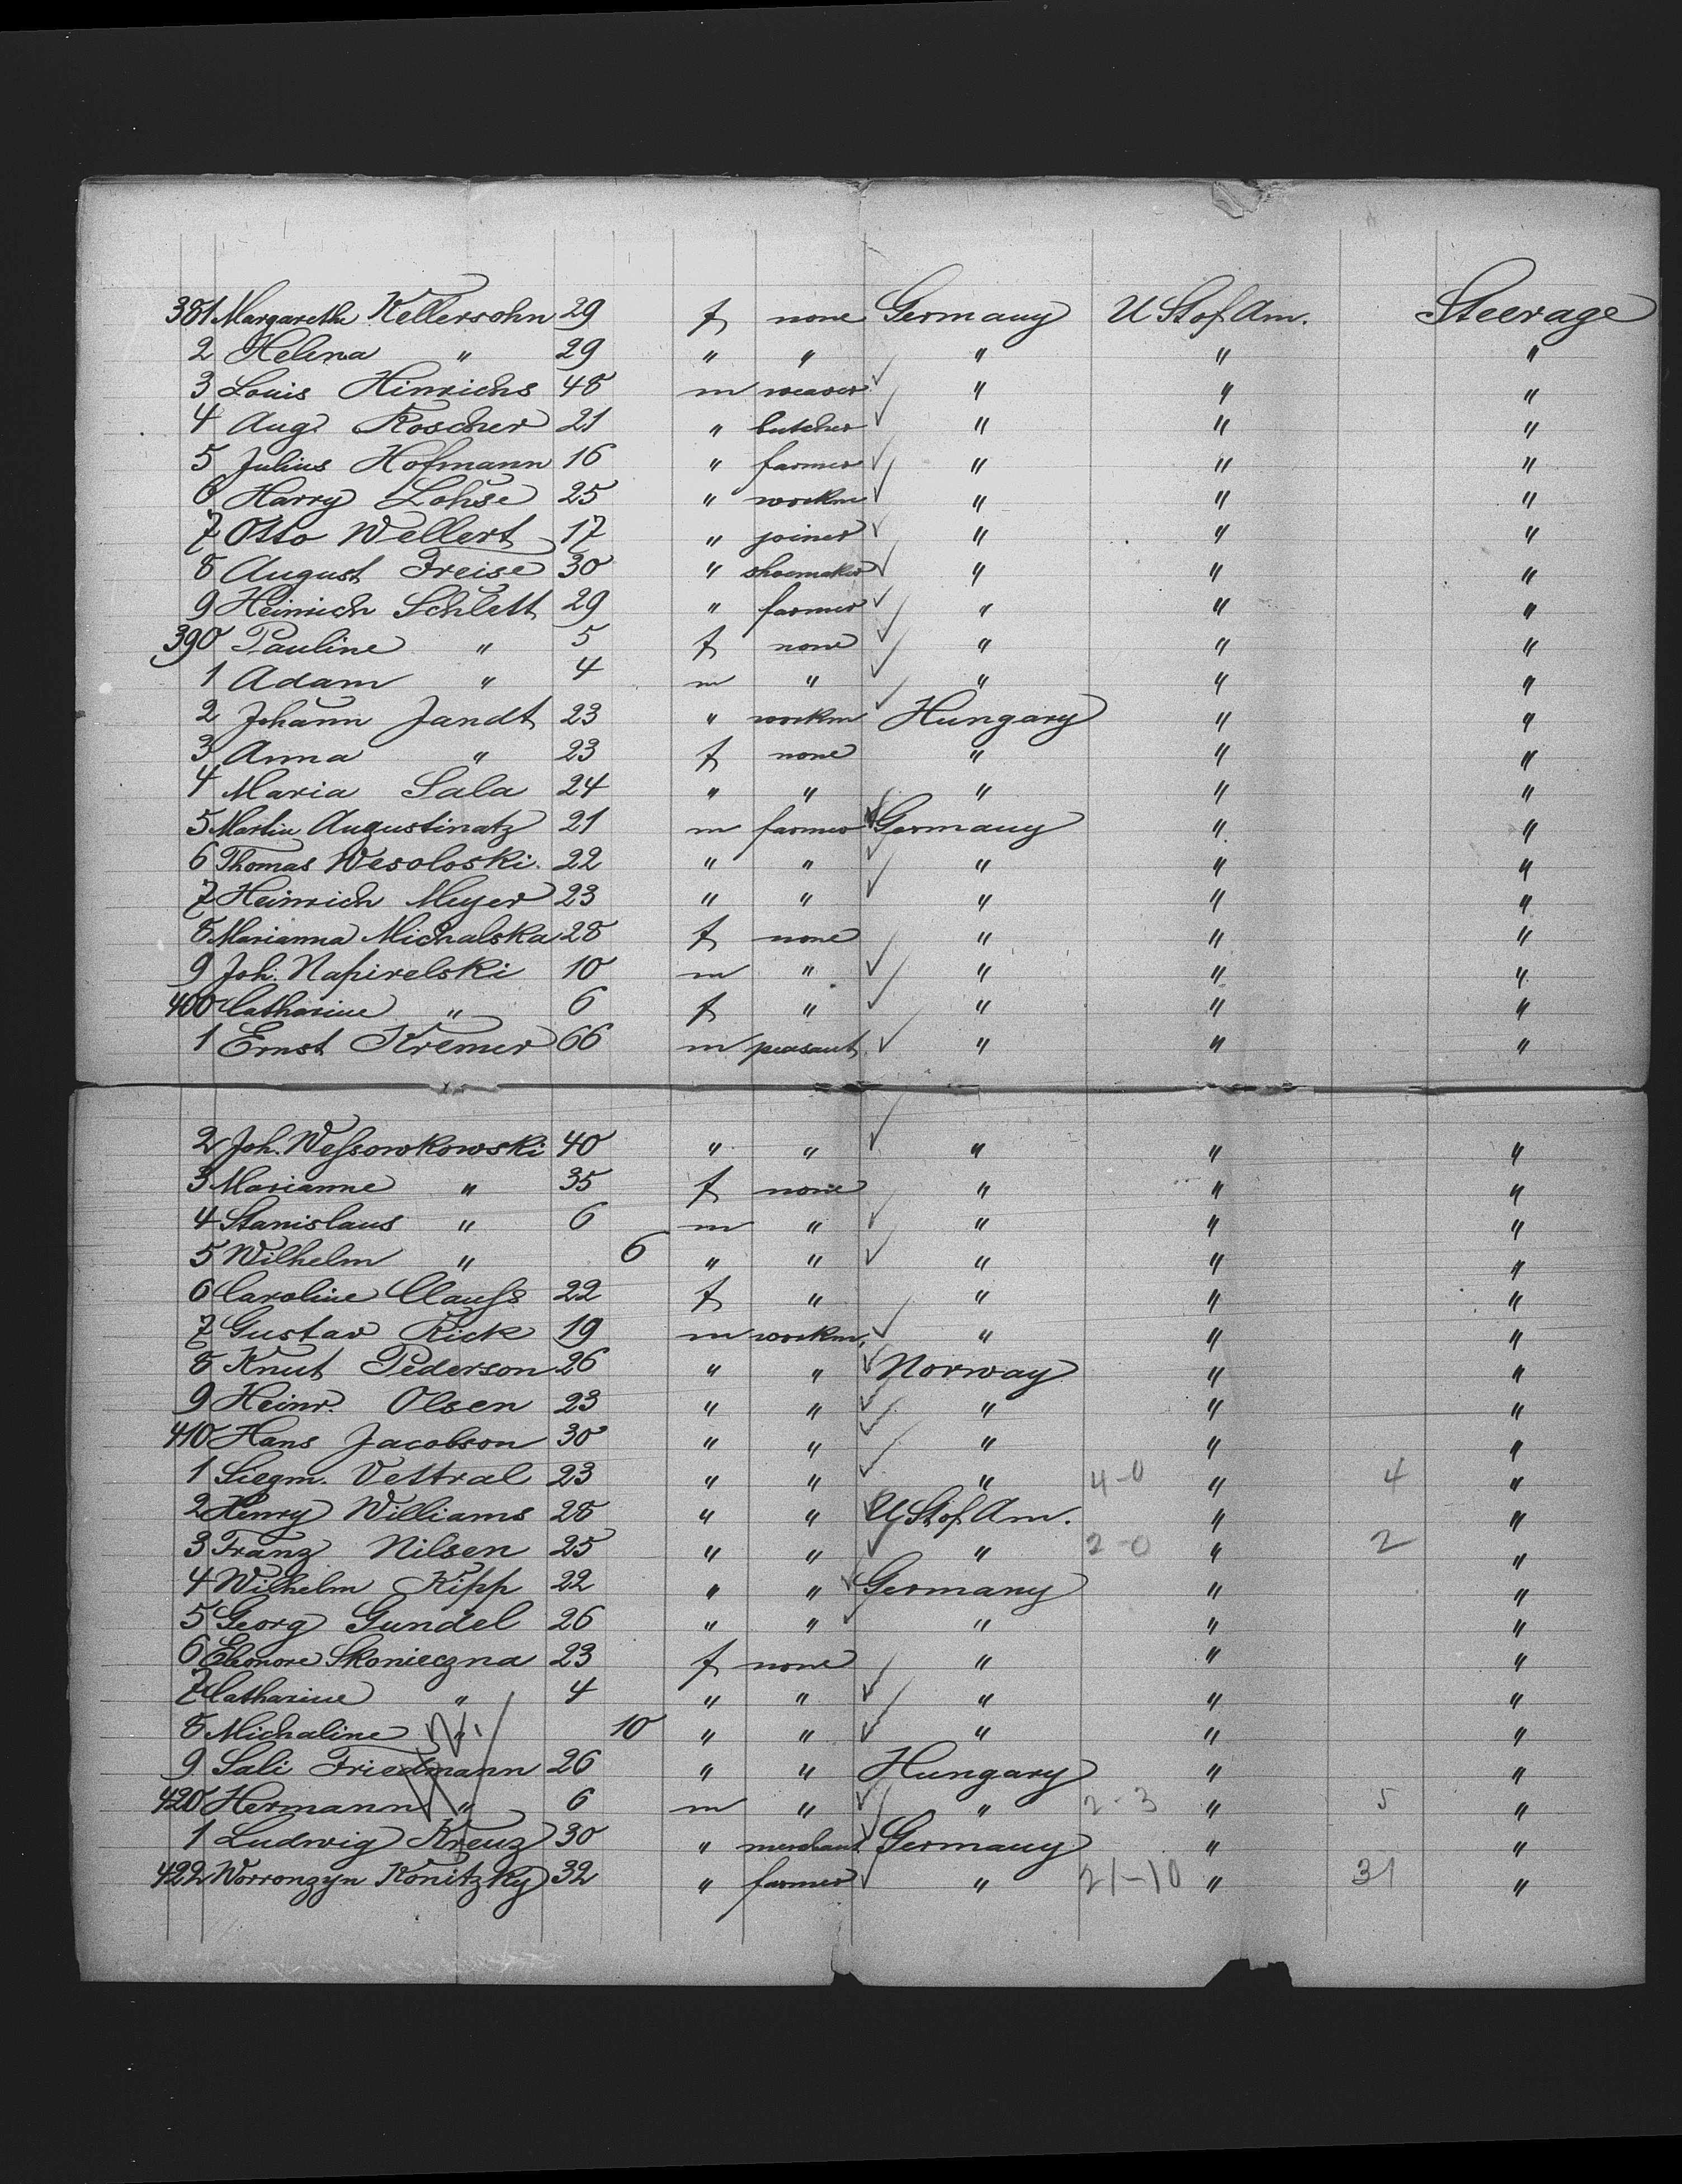 381 Margarethe Kellersohn 29 f none Germany U St of Am. Steerage
2 Helena " 29 " " " " "
3 Louis Hinrichs 48 m weaver " " "
4 Aug. Koscher 21 " butcher " " "
5 Julius Hofmann 16 " farmer " " "
6 Harry Lohse 25 " workm " " "
7 Otto Wellert 17 " joiner " " "
8 August Freise 30 " shoemaker " " "
9 Heinrich Schlett 29 " farmer " " "
390 Pauline " 5 f none " " "
1 Adam " 4 m " " " "
2 Johann Jandt 23 " workm Hungary " "
3 Anna " 23 f none " " "
4 Maria Sala 24 " " " " "
5 Martin Augustinatz 21 m farmer Germany " "
6 Thomas Wesoloski. 22 " " " " "
7 Heinrich Meyer 23 " " " " "
8 Marianna Michalska 28 f none " " "
9 Joh. Napirelski 10 m " " " "
400 Catharine " 6 f " " " "
1 Ernst Kremer 66 m peasant " " "
2 Joh. Weſsowkowski 40 " " " " "
3 Marianne " 35 f none " " "
4 Stanislaus " 6 m " " " "
5 Wilhelm " 6 " " " " "
6 Caroline Clauſs 22 f " " " "
7 Gustav Rick 19 m workm. " " "
8 Knut Pederson 26 " " Norway " "
9 Heinr. Olsen 23 " " " " "
410 Hans Jacobson 30 " " " " "
1 Siegm. Vettral 23 " " " 4-0 " 4 "
2 Henry Williams 28 " " U St of Am. " "
3 Franz Nilsen 25 " " " 2-0 " 2 "
4 Wilhelm Kipp 22 " " Germany " "
5 Georg Gundel 26 " " " " "
6 Eleonore Skonieczna 23 f none " " "
7 Catharine " 4 " " " " "
8 Michaline " 10 " " " " "
9 Sali Friedmann 26 " " Hungary " "
420 Hermann " 6 m " " 2-3 " 5 "
1 Ludwig Kreuz 30 " merchant Germany " "
422 Worronzyn Konitzky 32 " farmer " 21-10 " 31 "